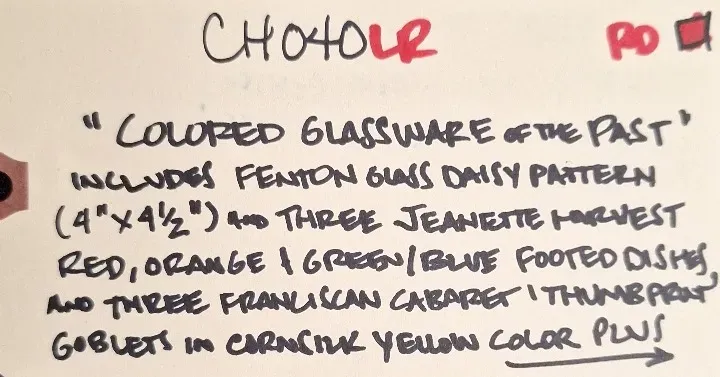 CH040LR RD
"COLORED GLASSWARE OF THE PAST"
INCLUDES FENTON GLASS DAISY PATTERN
(4"X4½") AND THREE JEANETTE HARVEST
RED, ORANGE & GREEN/BLUE FOOTED DISHES,
AND THREE FRANCISCAN CABARET 'THUMBPRINT'
GOBLETS IN CORNSILK YELLOW COLOR PLUS